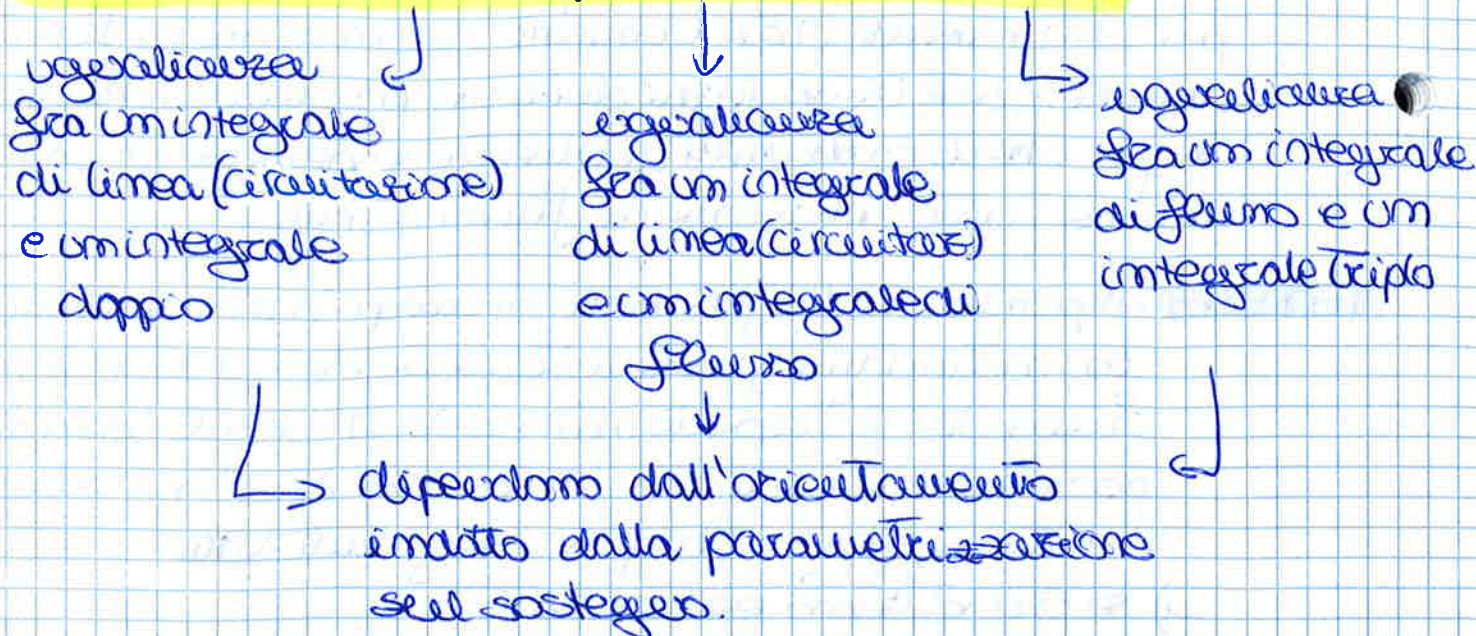 uguaglianza
fra un integrale
di linea (circuitazione)
e un integrale
doppio
uguaglianza
fra un integrale
di linea (circuitaz)
e un integrale di
flusso
uguaglianza
fra un integrale
di flusso e un
integrale triplo
dipendono dall'orientamento
indotto dalla parametrizzazione
sul sostegno.